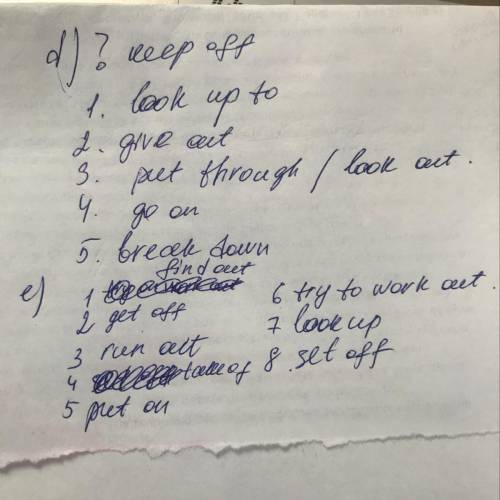 d) ? keep off
1. look up to
2. give out
3. put through / look out.
4. go on
5. break down
e) 1 find out
2 get off
3 run out
4 take of
5 put on
6 try to work out.
7 look up
8 set off